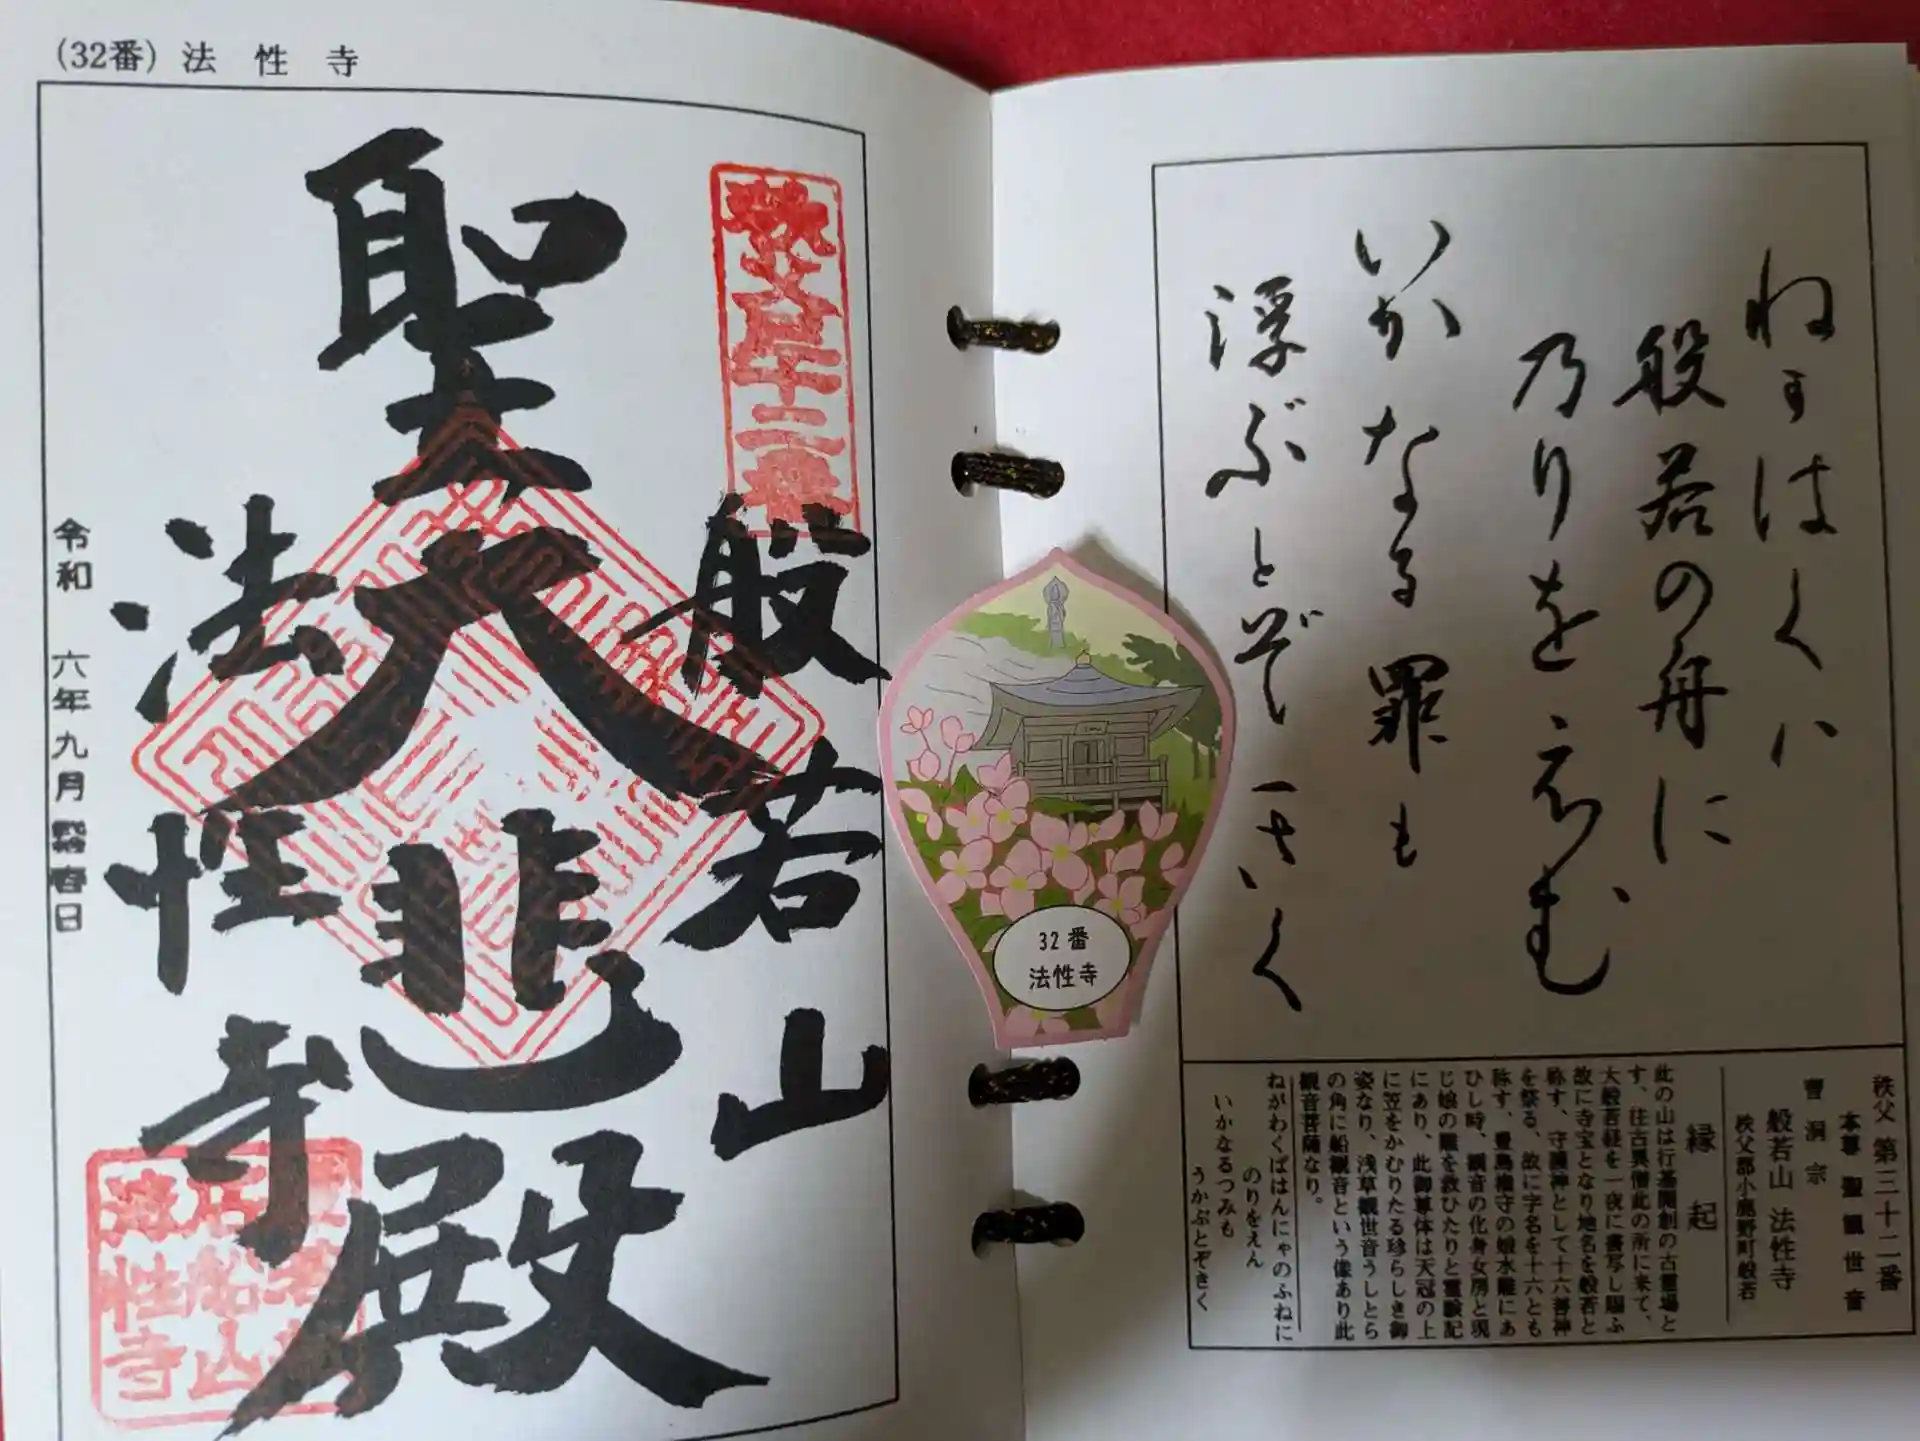 (32番) 法性寺
秩父三十二番
般若山
聖
大悲殿
法性寺
令和 六年 九月 日
ねがはくハ
般若の舟に
乃りをえむ
いかなる罪も
浮ぶとぞきく
32番
法性寺
秩父 第三十二番
本尊 聖観世音
曹洞宗
般若山 法性寺
秩父郡小鹿野町般若
縁起
此の山は行基開創の古霊場と
す、往古異僧此の所に来て、
大般若経を一夜に書写し賜ふ
故に寺宝となり地名を般若と
称す、守護神として十六善神
を祭る、故に字名を十六とも
称す、豊島権守の娘水難にあ
ひし時、観音の化身女房と現
じ娘の難を救ひたりと霊験記
にあり、此御尊体は天冠の上
に笠をかむりたる珍らしき御
姿なり、浅草観世音うしとら
の角に船観音という像あり此
観音菩薩なり。
ねがわくばはんにゃのふねに
のりをえん
いかなるつみも
うかぶとぞきく